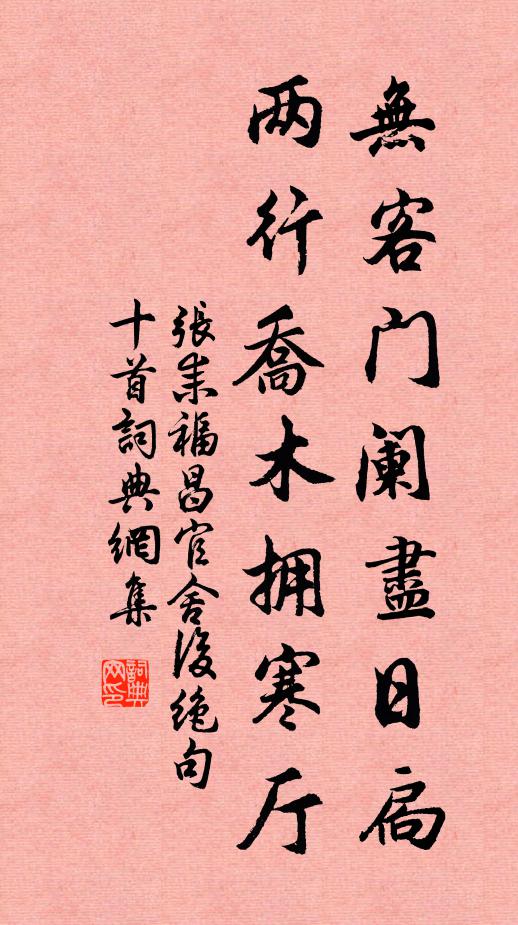 無客門阑盡日扃
两行喬木拥寒厅
張耒福昌官舍後絶句
十首詞典網集
詞典网印